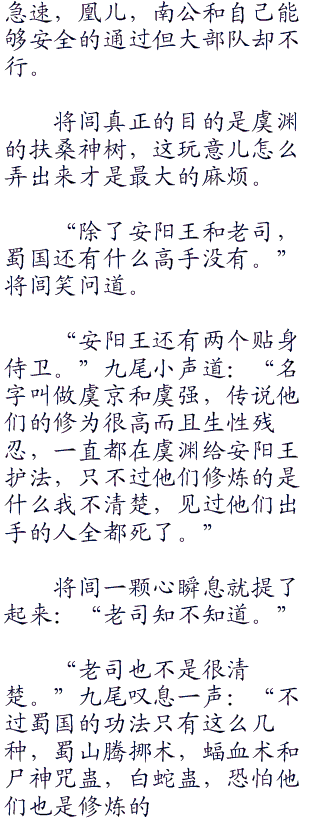 急速，凰儿，南公和自己能
够安全的通过但大部队却不
行。
将闾真正的目的是虞渊
的扶桑神树，这玩意儿怎么
弄出来才是最大的麻烦。
“除了安阳王和老司，
蜀国还有什么高手没有。”
将闾笑问道。
“安阳王还有两个贴身
侍卫。”九尾小声道：“名
字叫做虞京和虞强，传说他
们的修为很高而且生性残
忍，一直都在虞渊给安阳王
护法，只不过他们修炼的是
什么我不清楚，见过他们出
手的人全都死了。”
将闾一颗心瞬息就提了
起来：“老司知不知道。”
“老司也不是很清
楚。”九尾叹息一声：“不
过蜀国的功法只有这么几
种，蜀山腾挪术，蝠血术和
尸神咒蛊，白蛇蛊，恐怕他
们也是修炼的